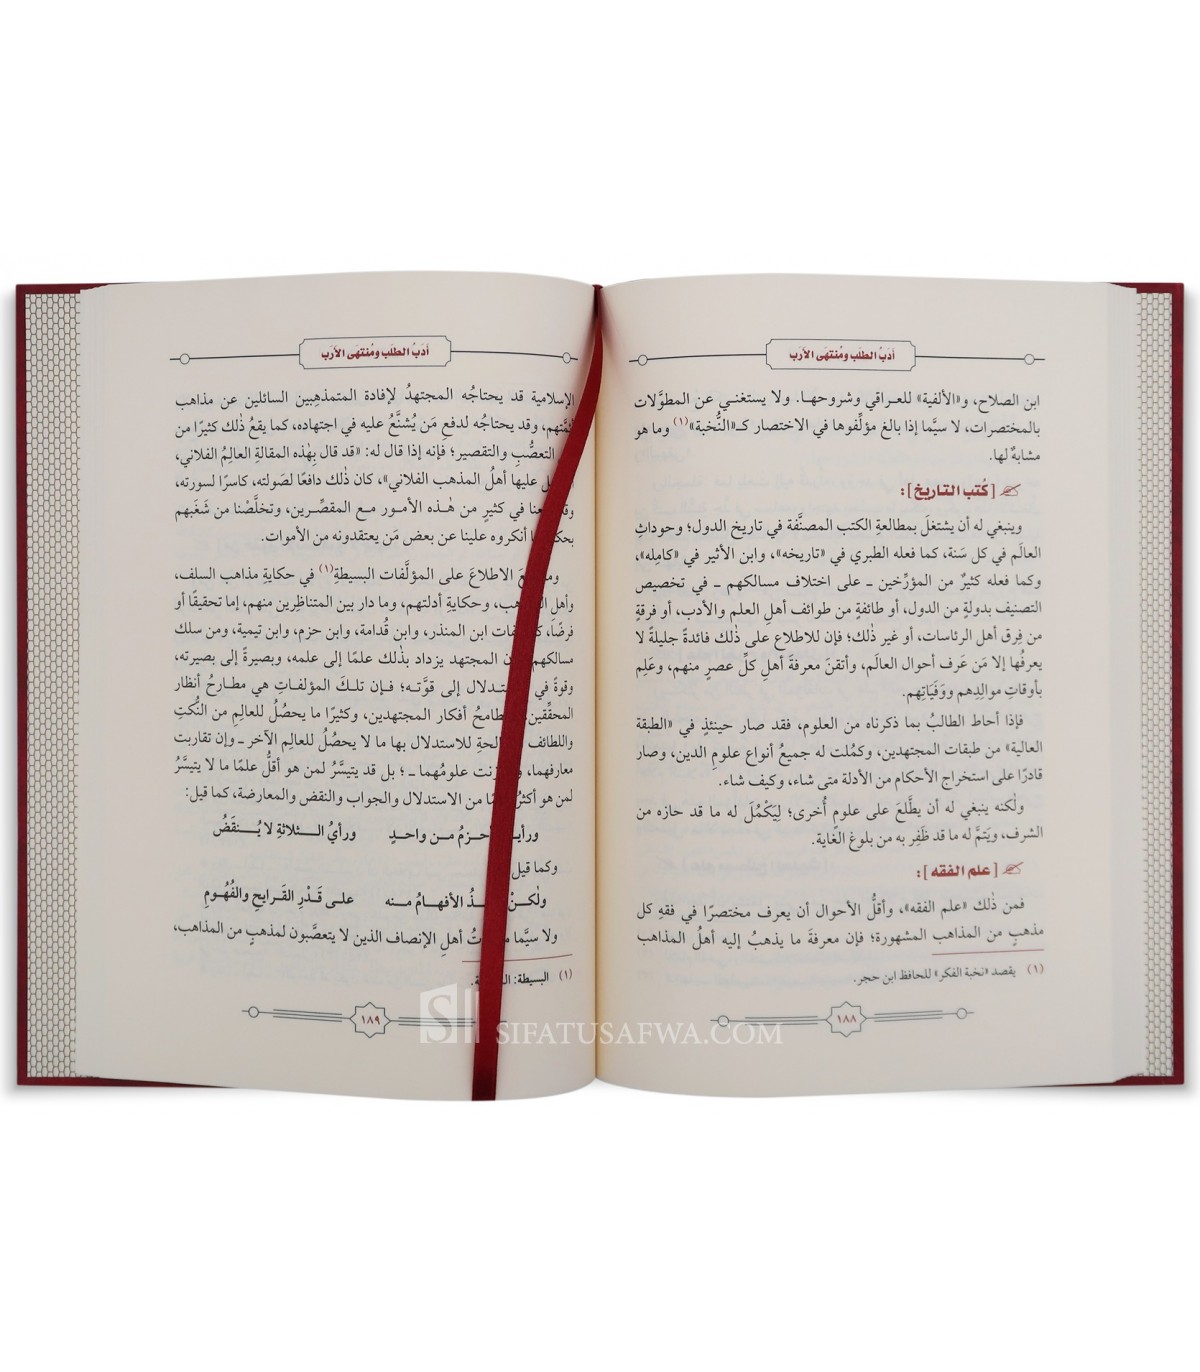 أدَبُ الطلَب ومُنتهَى الأرَب
ابن الصلاح، و«الألفية» للعراقي وشروحها. ولا يستغني عن المطوَّلات
بالمختصرات، لا سيَّما إذا بالغ مؤلِّفوها في الاختصار كـ«النُّخبة»(١) وما هو
مشابهٌ لها.
[كُتب التاريخ]:
وينبغي له أن يشتغلَ بمطالعةِ الكتب المصنَّفة في تاريخ الدول؛ وحوداثِ
العالَم في كل سَنة، كما فعله الطبري في «تاريخه»، وابن الأثير في «كامِله»،
وكما فعله كثيرٌ من المؤرِّخين ــ على اختلاف مسالكهم ــ في تخصيص
التصنيف بدولةٍ من الدول، أو طائفةٍ من طوائف أهلِ العلم والأدب، أو فرقةٍ
من فِرق أهل الرئاسات، أو غير ذٰلك؛ فإن للاطلاع على ذٰلك فائدةً جليلةً لا
يعرفُها إلا مَن عَرف أحوال العالَم، وأتقنَ معرفةَ أهل كلِّ عصرٍ منهم، وعَلِم
بأوقاتِ موالِدِهم ووَفَيَاتِهم.
فإذا أحاط الطالبُ بما ذكرناه من العلوم، فقد صار حينئذٍ في «الطبقة
العالية» من طبقات المجتهدين، وكمُلت له جميعُ أنواع علومِ الدين، وصار
قادرًا على استخراج الأحكام من الأدلة متى شاء، وكيف شاء.
ولٰكنه ينبغي له أن يطَّلعَ على علومٍ أُخرى؛ لِيَكْمُلَ له ما قد حازه من
الشرف، ويَتمَّ له ما قد ظَفِر به من بلوغ الغاية.
[علم الفقه]:
فمن ذٰلك «علم الفقه»، وأقلُّ الأحوال أن يعرف مختصرًا في فقهِ كل
مذهبٍ من المذاهب المشهورة؛ فإن معرفةَ ما يذهبُ إليه أهلُ المذاهب
(١) يقصد «نخبة الفكر» للحافظ ابن حجر.
١٨٨
أدَبُ الطلَب ومُنتهَى الأرَب
الإسلامية قد يحتاجُه المجتهدُ لإفادة المتمذهِبين السائلين عن مذاهب
أئمَّتهم، وقد يحتاجُه لدفعِ مَن يُشنَّعُ عليه في اجتهاده، كما يقعُ ذٰلك كثيرًا من
التعصُّبِ والتقصير؛ فإنه إذا قال له: «قد قال بهٰذه المقالةِ العالِمُ الفلاني،
عليها أهلُ المذهب الفلاني»، كان ذٰلك دافعًا لصَولته، كاسرًا لسورته،
في كثيرٍ من هٰذه الأمور مع المقصِّرين، وتخلَّصْنا من شَغَبهم
ما أنكروه علينا عن بعض مَن يعتقدونه من الأموات.
الاطلاعَ على المؤلَّفات البسيطةِ(١) في حكايةِ مذاهب السلف،
وأهلِ المذاهب، وحكايةِ أدلتهم، وما دار بين المتناظِرين منهم، إما تحقيقًا أو
فرضًا، ابن المنذر، وابن قُدامة، وابن حزم، وابن تيمية، ومن سلك
مسالكهم المجتهد يزداد بذٰلك علمًا إلى علمه، وبصيرةً إلى بصيرته،
وقوةً في الاستدلال إلى قوَّته؛ فإن تلك المؤلفات هي مطارحُ أنظار
المحقِّقين، ومطامحُ أفكار المجتهدين، وكثيرًا ما يحصُلُ للعالِم من النُّكتِ
واللطائف الصالحةِ للاستدلال بها ما لا يحصُلُ للعالِم الآخر ــ وإن تقاربت
معارفهما، وتوازنت علومُهما ــ؛ بل قد يتيسَّرُ لمن هو أقلُّ علمًا ما لا يتيسَّرُ
لمن هو أكثرُ علمًا من الاستدلال والجواب والنقض والمعارضة، كما قيل:
أحزمُ من واحدٍ ورأيُ الثلاثةِ لا يُنقَضُ
وكما قيل
ولٰكنْ الأفهامُ منه على قَدْرِ القَرايحِ والفُهُومِ
ولا سيَّما أهلِ الإنصاف الذين لا يتعصَّبون لمذهبٍ من المذاهب،
(١) البسيطة:
١٨٩
SIFATUSAFWA.COM